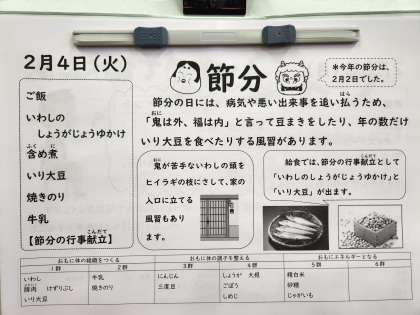 2月4日(火)
節分
*今年の節分は、
2月2日でした。
ご飯
いわしの
しょうがじょうゆかけ
ふくに
含め煮
いり大豆
焼きのり
牛乳
こんだて
【節分の行事献立】
はら
節分の日には、病気や悪い出来事を追い払うため、
おに
「鬼は外、福は内」と言って豆まきをしたり、年の数だけ
いり大豆を食べたりする風習があります。
おに
鬼が苦手ないわしの頭を
ヒイラギの枝にさして、家の
入口に立てる
風習もあり
ます。
こんだて
給食では、節分の行事献立として
「いわしのしょうがじょうゆかけ」と
「いり大豆」が出ます。
おもに体の組織をつくる
おもに体の調子を整える
おもにエネルギーとなる
1群 2群 3群 4群 5群 6群
いわし 牛乳 にんじん しょうが 大根 精白米
豚肉 けずりぶし 焼きのり 三度豆 ごぼう 砂糖
いり大豆 しめじ じゃがいも